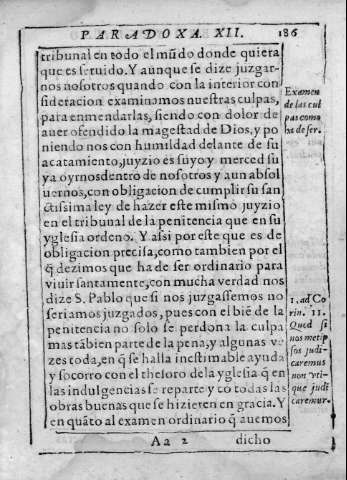 PARADOXA XII. 186
tribunal en todo el mũdo donde quiera
que es seruido. Y aunque se dize juzgar-
nos nosotros quando con la interior con
sideracion examinamos nuestras culpas,
para enmendarlas, siendo con dolor de
auer ofendido la magestad de Dios, y po
niendo nos con humildad delante de su
acatamiento, juyzio es suyo y merced su
ya oyrnos dentro de nosotros y aun absol
uernos, con obligacion de cumplir su san
ctissima ley de hazer este mismo juyzio
en el tribunal de la penitencia que en su
yglesia ordeno. Y assi por este que es de
obligacion precisa, como tambien por el
q̃ dezimos que ha de ser ordinario para
viuir santamente, con mucha verdad nos
dize S. Pablo que si nos juzgassemos no
seriamos juzgados, pues con el biẽ de la
penitencia no solo se perdona la culpa
mas tãbien parte de la pena, y algunas ve
zes toda, en q̃ se halla inestimable ayuda
y socorro con el thesoro de la yglesia q̃ en
las indulgencias se reparte y cõ todas las
obras buenas que se hizieren en gracia. Y
en quãto al examen ordinario q̃ auemos
Aa 2 dicho
Examen
de las cul
pas como
ha de ser.
1. ad Co
rin. 11.
Quod si
nos metip
sos judi-
caremus
non vti-
que judi
caremur.